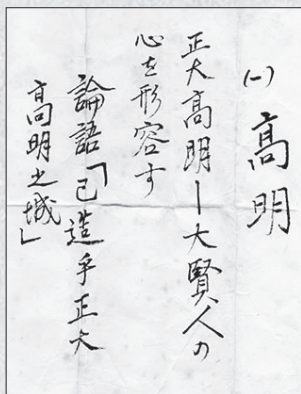 (一) 高明
正大高明ー大賢人の
心を形容す
論語「已造乎正大
高明之域」